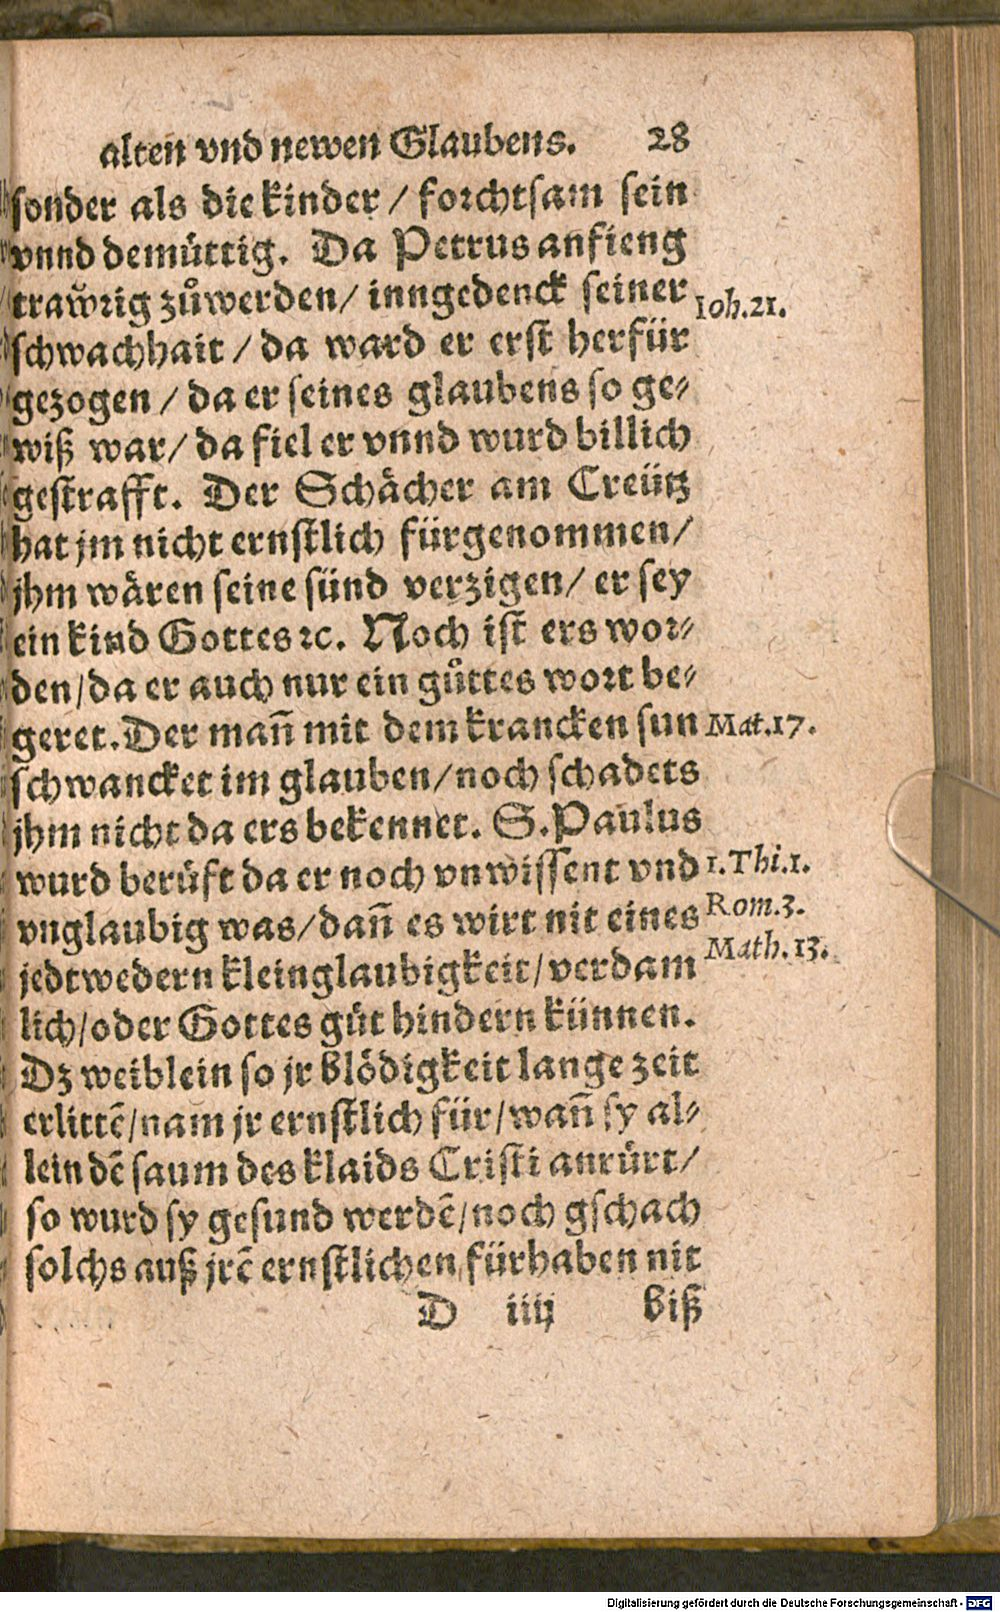 alten vnd newen Glaubens. 28
sonder als die kinder / forchtsam sein
vnnd demůttig. Da Petrus anfieng
traẘrig zůwerden / inngedenck seiner
Ioh.21.
schwachhait / da ward er erst herfür
gezogen / da er seines glaubens so ge-
wiß war / da fiel er vnnd wurd billich
gestrafft. Der Schächer am Creütz
hat jm nicht ernstlich fürgenommen /
jhm wären seine sünd verzigen / er sey
ein kind Gottes ꝛc. Noch ist ers wor-
den / da er auch nur ein gůttes wort be-
geret. Der mañ mit dem krancken sun
Mat.17.
schwancket im glauben / noch schadets
jhm nicht da ers bekennet. S. Paulus
wurd berůft da er noch vnwissent vnd
1.Thi.1.
vnglaubig was / dañ es wirt nit eines
Rom.3.
jedtwedern kleinglaubigkeit / verdam
Math.13.
lich / oder Gottes güt hindern künnen.
Dz weiblein so jr blödigkeit lange zeit
erlittẽ / nam jr ernstlich für / wañ sy al-
lein dẽ saum des klaids Cristi anrůrt /
so wurd sy gesund werdẽ / noch gschach
solchs auß jrẽ ernstlichen fürhaben nit
D iiij biß
Digitalisierung gefördert durch die Deutsche Forschungsgemeinschaft - DFG